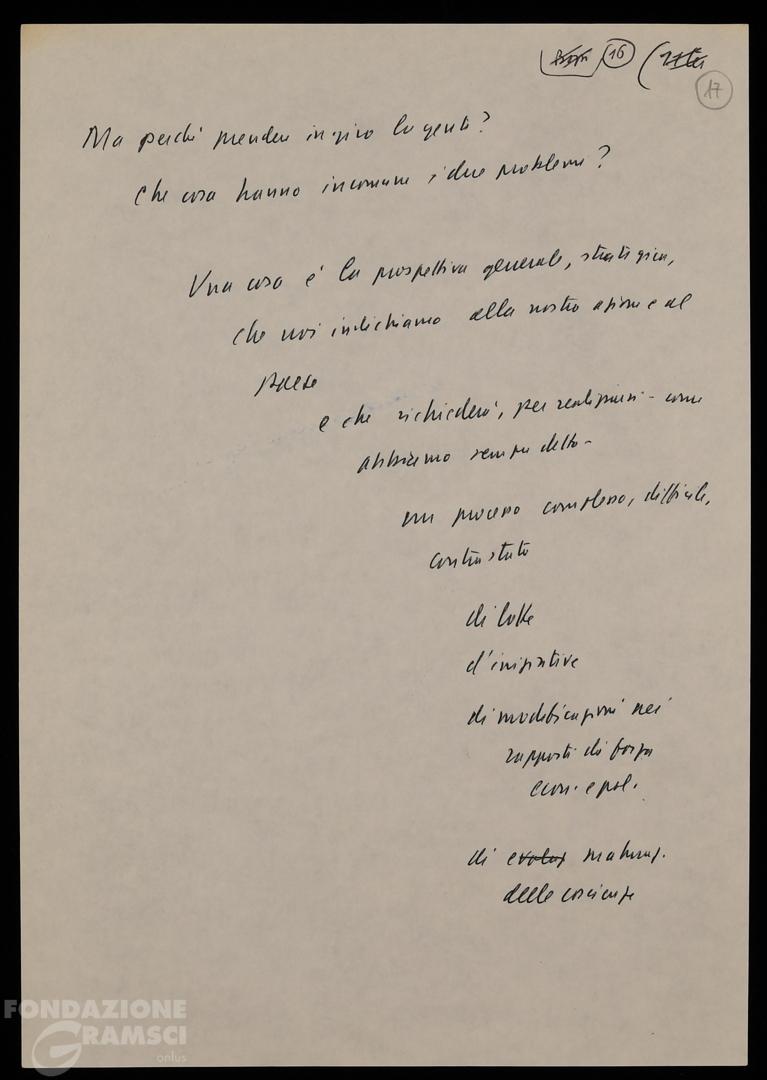 16
17
Ma perché prendere in giro la gente?
Che cosa hanno in comune i due problemi?
Una cosa è la prospettiva generale, strategica,
che noi indichiamo alla nostra azione e al
paese
e che richiederà, per realizzarsi - come
abbiamo sempre detto -
un processo complesso, difficile,
contrastato
di lotte
d'iniziative
di modificazioni nei
rapporti di forza
econ. e pol.
di evoluz maturaz.
delle coscienze
FONDAZIONE
GRAMSCI
onlus